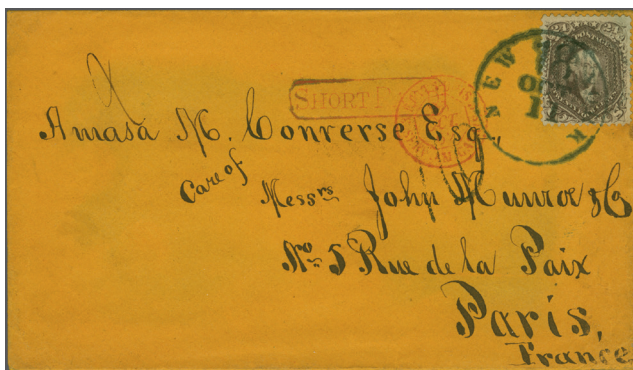 NEW
OCT
11
SHORT
Amasa M. Converse Esq.,
Care of Messrs John Munroe & Co
No 5 Rue de la Paix
Paris,
France